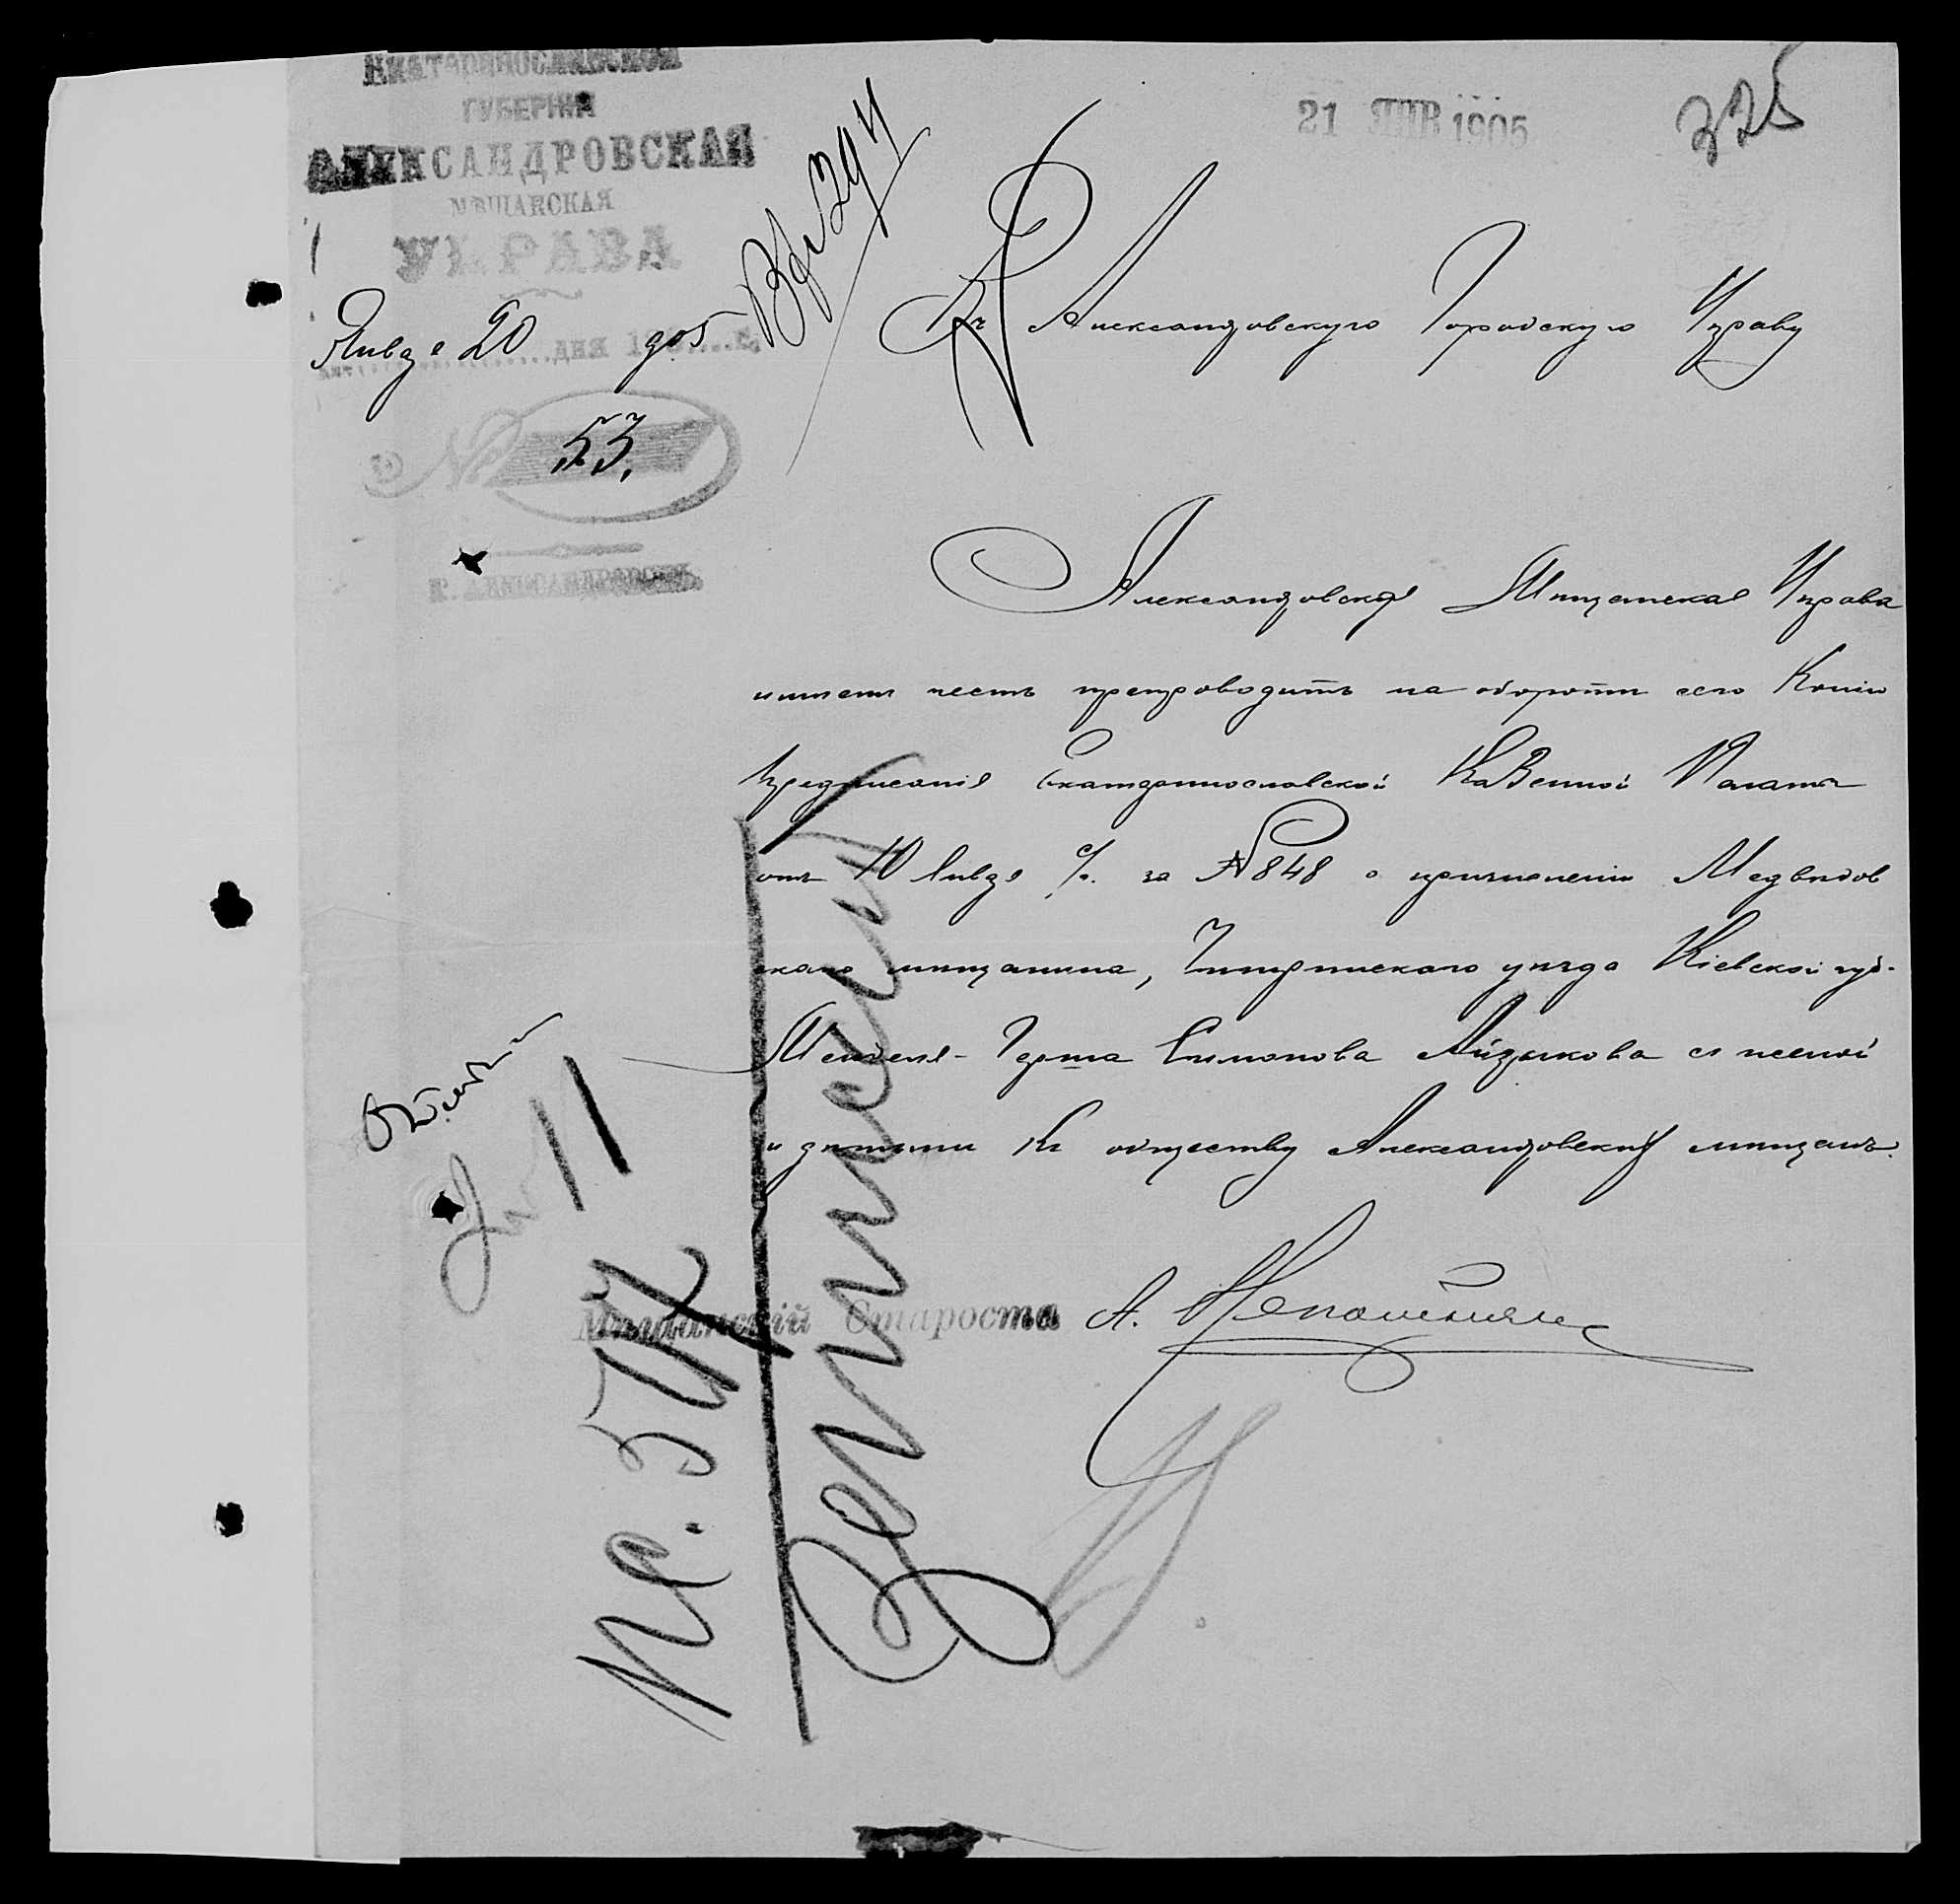 ЕКАТЕРИНОСЛАВСКОЙ
ГУБЕРНІИ
АЛЕКСАНДРОВСКАЯ
МѢЩАНСКАЯ
УПРАВА
Янвря 20 дня 1905 г.
№ 53.
Г. АЛЕКСАНДРОВСКЪ
21 ЯНВ 1905
325
Вх 294
Въ Александровскую Городскую Управу
Александровская Мѣщанская Управа
имѣетъ честь препроводить на оборотѣ сего Копію
предписанія Екатеринославской Казенной Палаты
отъ 10 Янвря с/г. за № 848 о причисленіи Медвидов
скаго мѣщанина, Чигиринскаго уѣзда Кіевской губ.
Менделя-Герша Симонова Айзикова съ женой
и дѣтьми къ обществу Александровскихъ мѣщанъ.
Мѣщанскій Староста А.
11